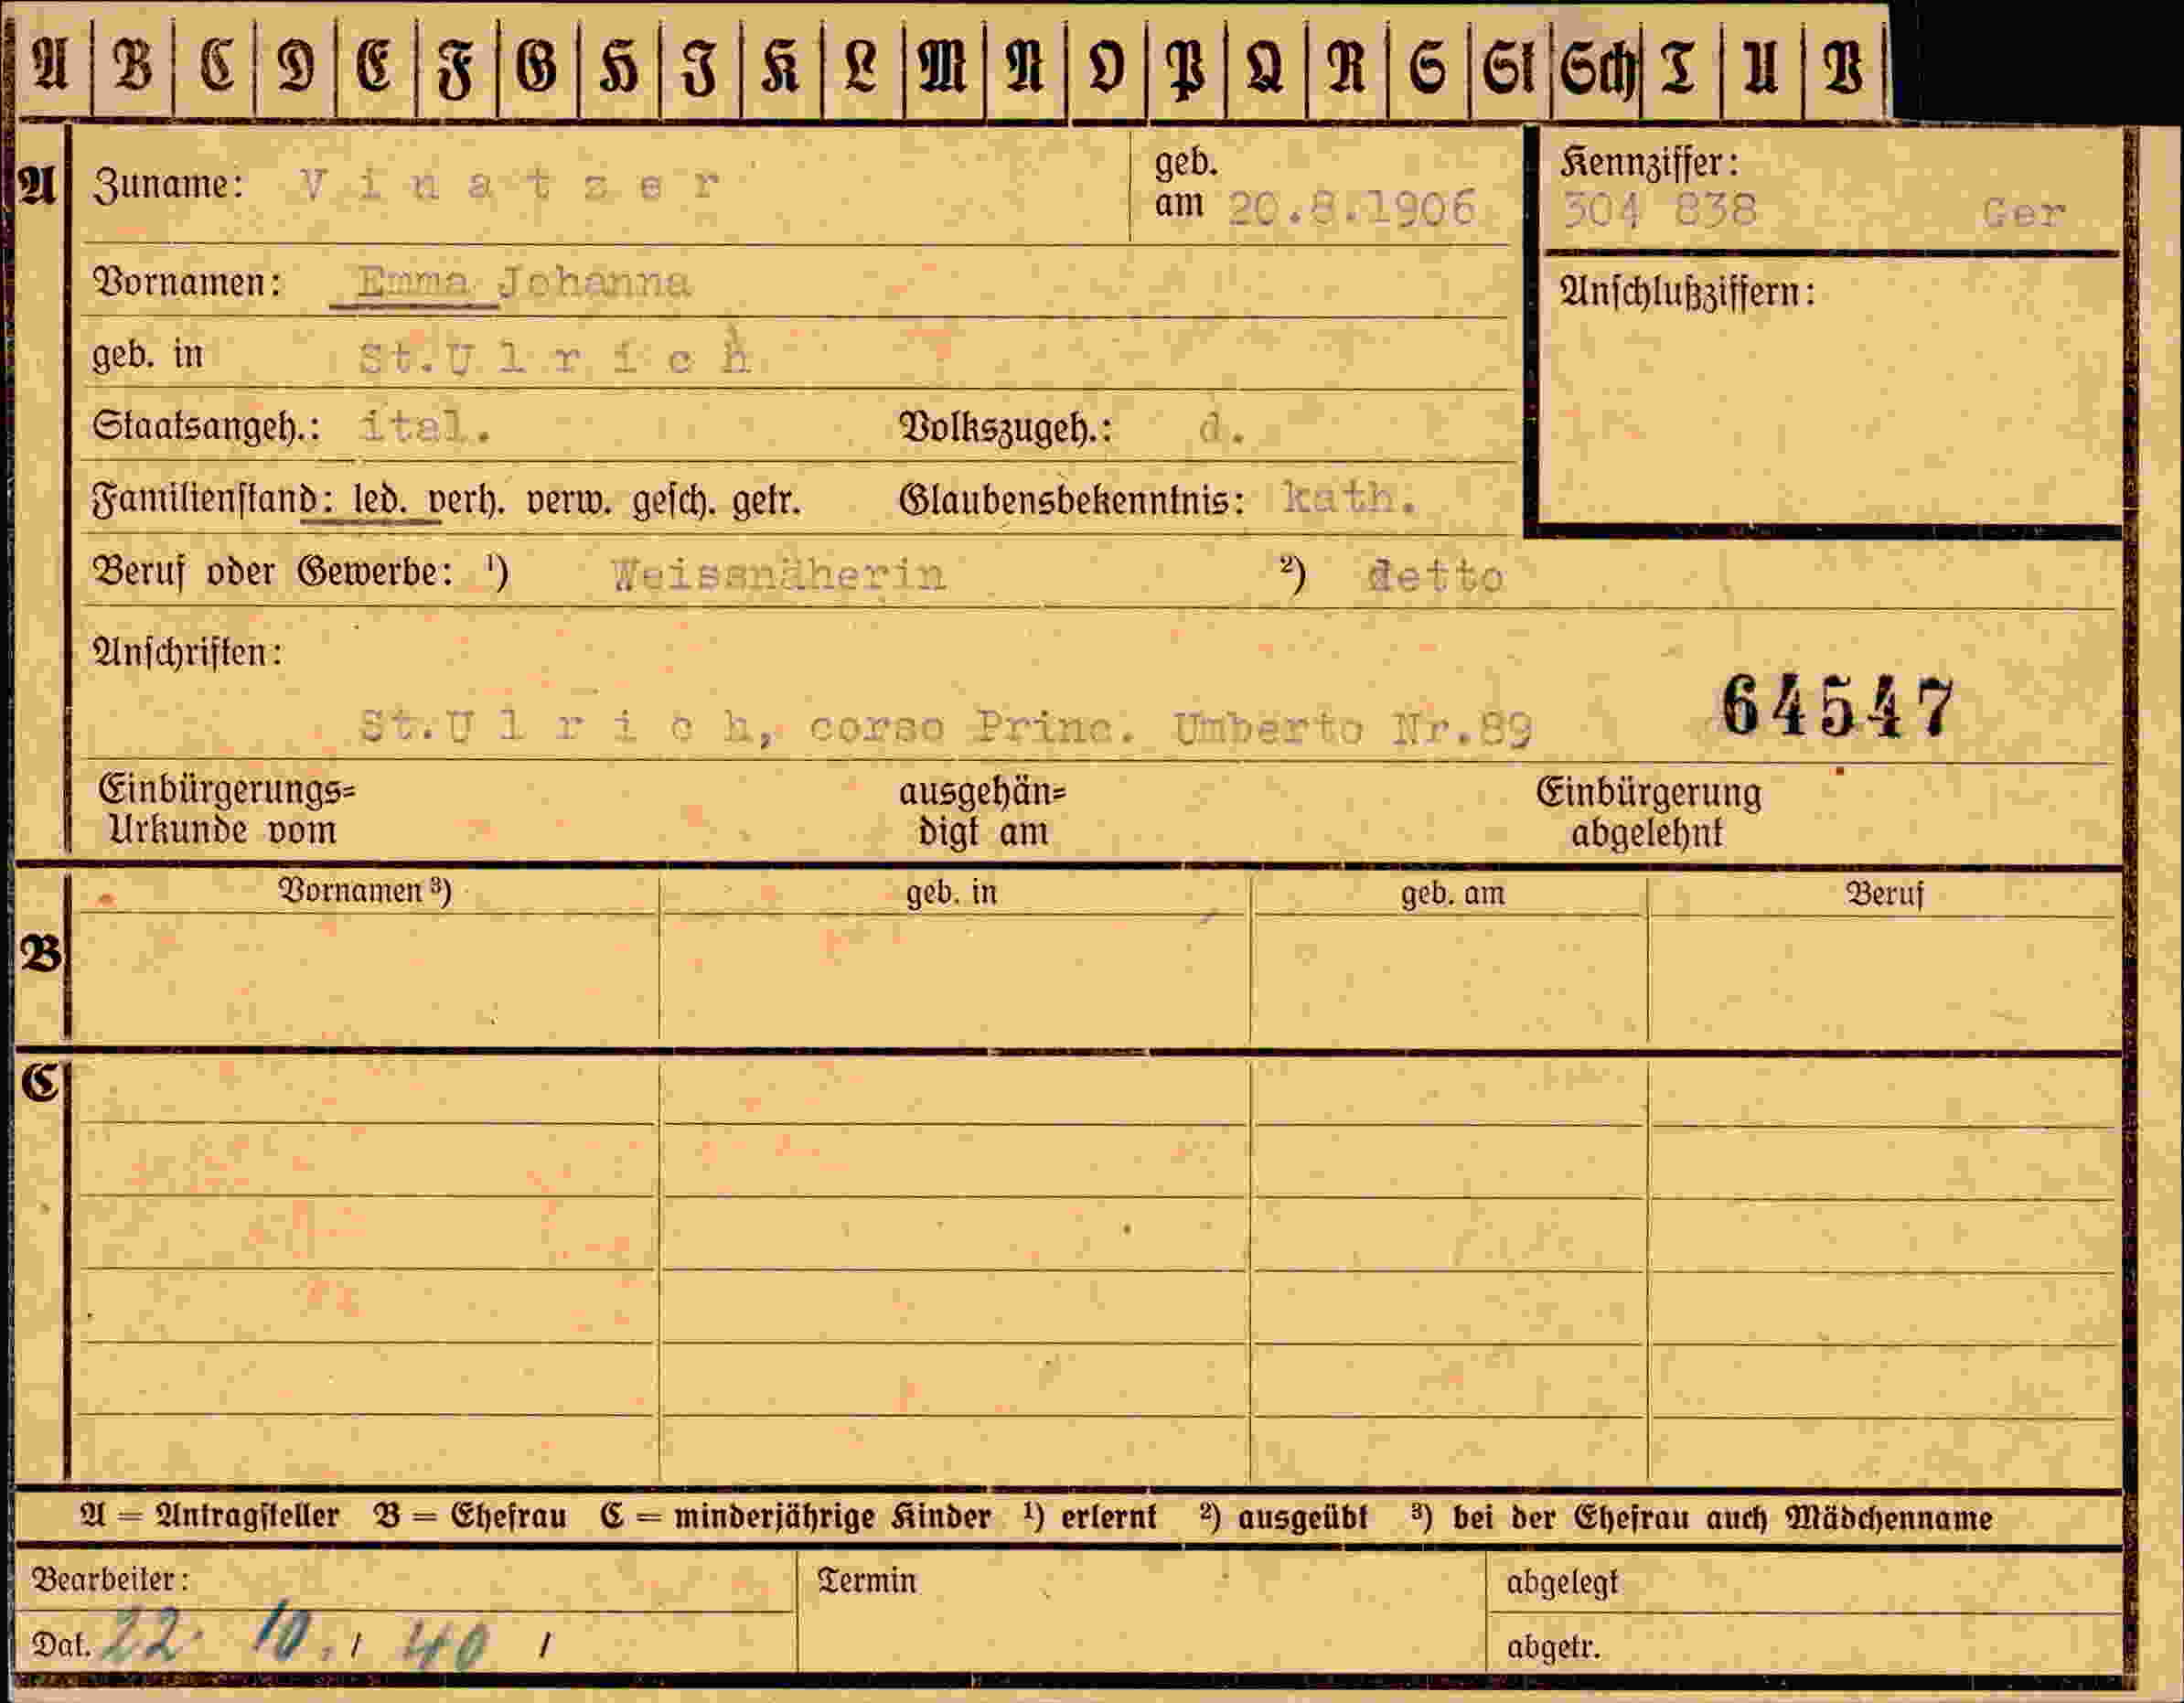 A B C D E F G H I K L M N O P Q R S St Sch T U V
A Zuname: Vinatzer geb. am 20.8.1906 Kennziffer: 304 838 Ger
Vornamen: Emma Johanna Anschlußziffern:
geb. in St.Ulrich
Staatsangeh.: ital. Volkszugeh.: d.
Familienstand: led. verh. verw. gesch. getr. Glaubensbekenntnis: kath.
Beruf oder Gewerbe: ¹) Weissnäherin ²) detto
Anschriften:
St.Ulrich, corso Princ. Umberto Nr.89 64547
Einbürgerungs= ausgehän= Einbürgerung
Urkunde vom digt am abgelehnt
Vornamen ³) geb. in geb. am Beruf
B
C
A = Antragsteller B = Ehefrau C = minderjährige Kinder ¹) erlernt ²) ausgeübt ³) bei der Ehefrau auch Mädchenname
Bearbeiter: Termin abgelegt
Dat. 22. 10. / 40 / abgetr.